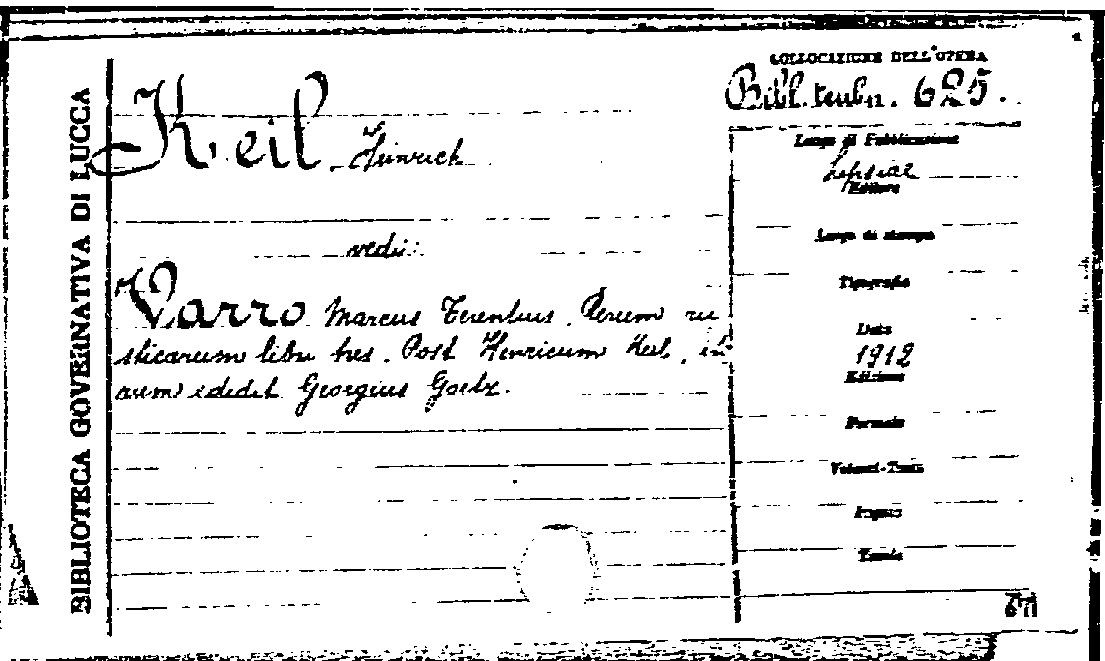 BIBLIOTECA GOVERNATIVA DI LUCCA
COLLOCAZIONE DELL'OPERA
Bibl. teubn. 625.
Keil, Heinrich
Luogo di Pubblicazione
Lipsiae
Editore
Luogo di stampa
vedi:
Tipografia
Varro Marcus Terentius. Rerum ru
sticarum libri tres. Post Henricum Keil, ite
rum edidit Georgius Goetz.
Data
1912
Edizione
Formato
Volumi-Tomi
Pagine
Tavole